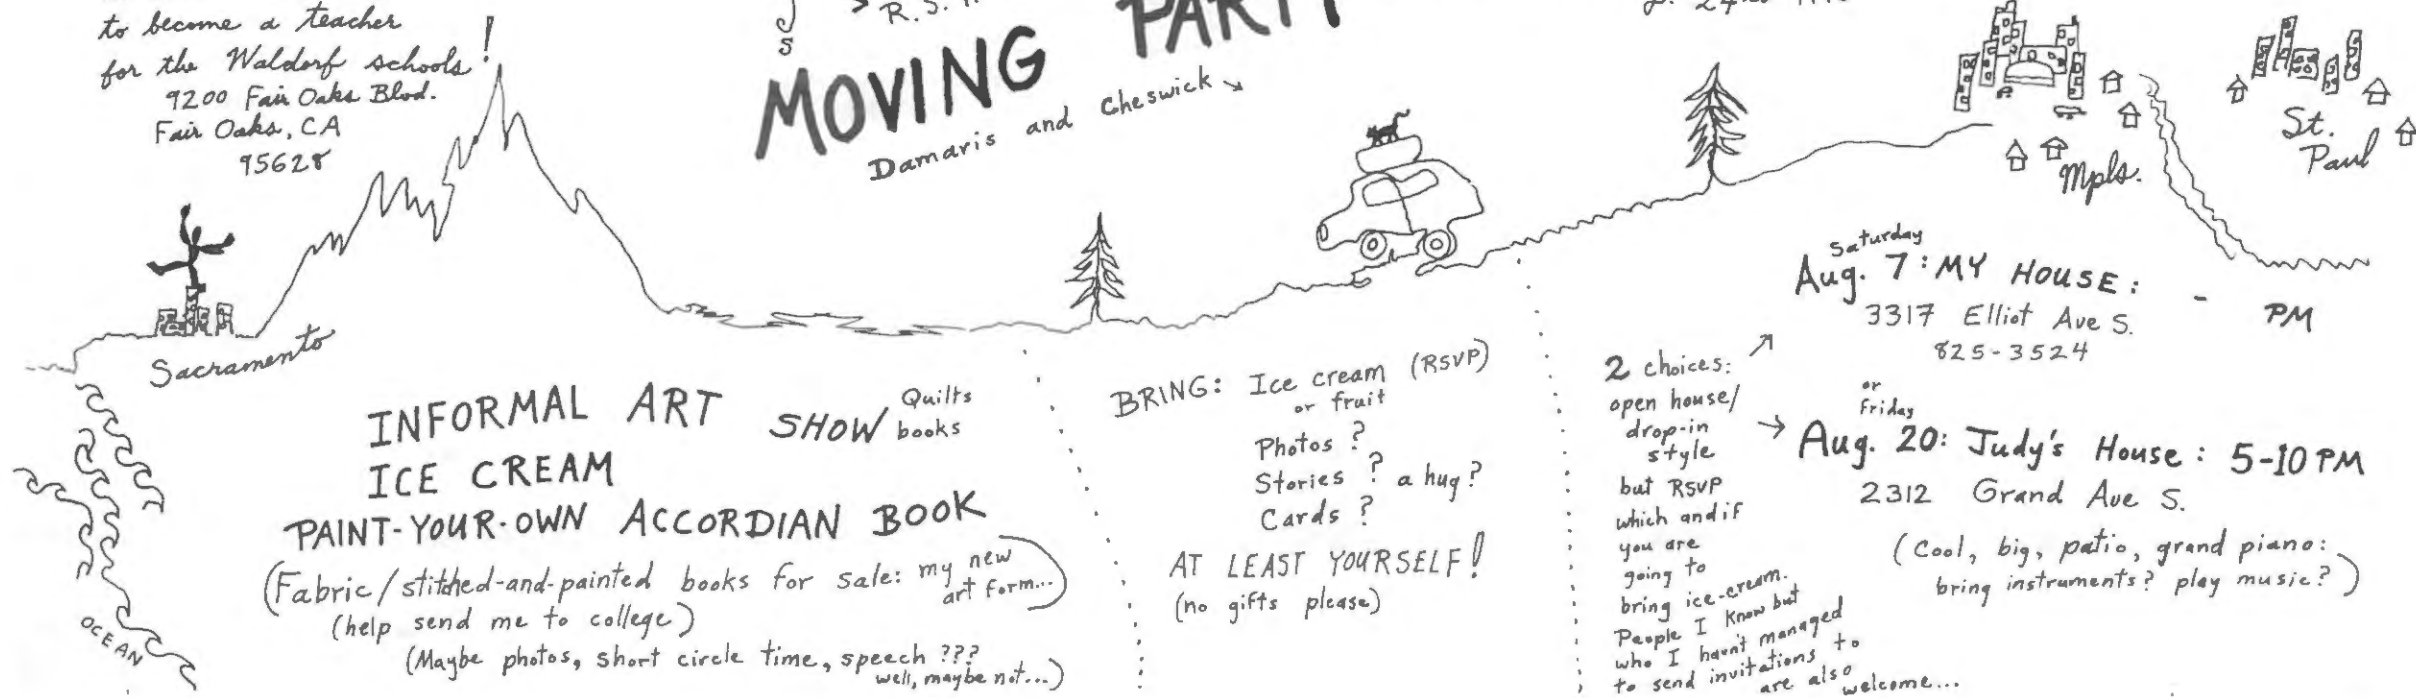 to become a teacher
for the Waldorf schools!
9200 Fair Oaks Blvd.
Fair Oaks, CA
95628
s
MOVING PARTY
Damaris and Cheswick
Mpls.
St.
Paul
Sacramento
OCEAN
INFORMAL ART SHOW Quilts
books
ICE CREAM
PAINT-YOUR-OWN ACCORDIAN BOOK
(Fabric/stitched-and-painted books for sale: my new
art form...)
(help send me to college)
(Maybe photos, short circle time, speech ???
well, maybe not...)
BRING: Ice cream (RSVP)
or fruit
Photos ?
Stories ? a hug?
Cards ?
AT LEAST YOURSELF!
(no gifts please)
2 choices:
open house/
drop-in
style
but RSVP
which and if
you are
going to
bring ice-cream.
People I know but
who I havn't managed
to send invitations to
are also
welcome...
Saturday
Aug. 7: MY HOUSE: - PM
3317 Elliot Ave S.
825-3524
or
Friday
Aug. 20: Judy's House: 5-10 PM
2312 Grand Ave S.
(Cool, big, patio, grand piano:
bring instruments? play music?)